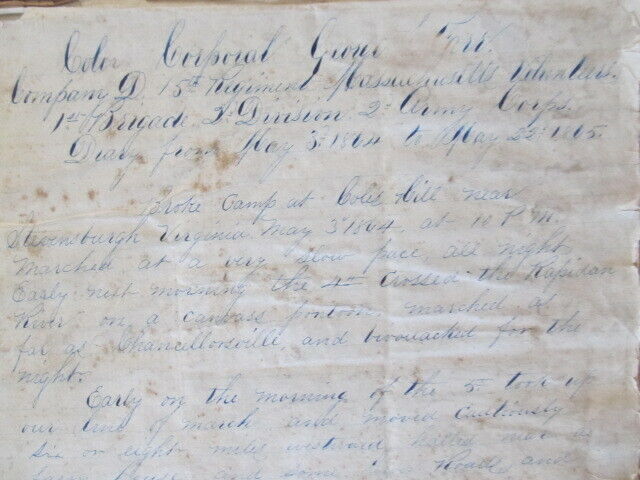 Color Corporal
Company D. 15th Regiment Massachusetts Volunteers.
1st Brigade. 2d Division 2d Army Corps.
Diary from May 3d 1864 to May 22d 1865.
Broke Camp at Coles Hill near
Stevensburgh Virginia May 3d 1864, at 10 P.M.
Marched at a very slow pace, all night
Early next morning the 4th crossed the Rapidan
River on a canvass pontoon, marched as
far as Chancellorsville, and bivouacked for the
night.
Early on the morning of the 5th took up
our line of march and moved cautiously
six or eight miles westward halted near a
farm house and some Roads, and